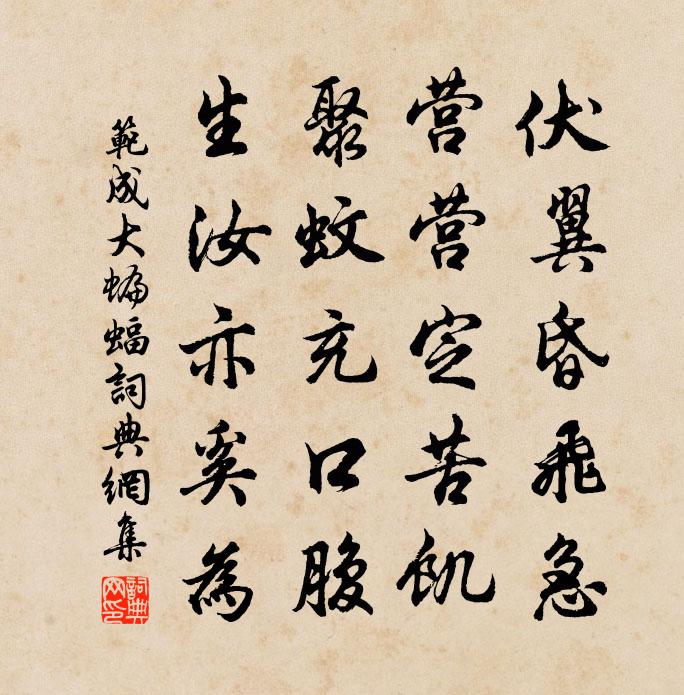 伏翼昏飛急
营营定苦飢
聚蚊充口腹
生汝亦奚為
範成大蝙蝠詞典網集
詞典網印